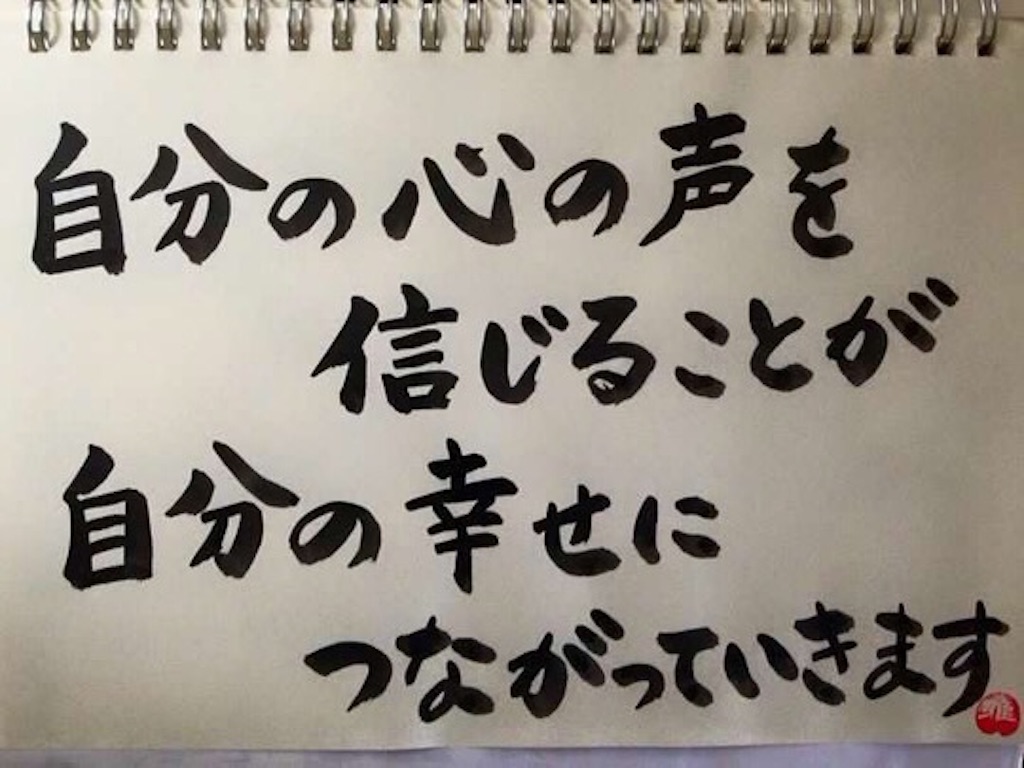 自分の心の声を
信じることが
自分の幸せに
つながっていきます